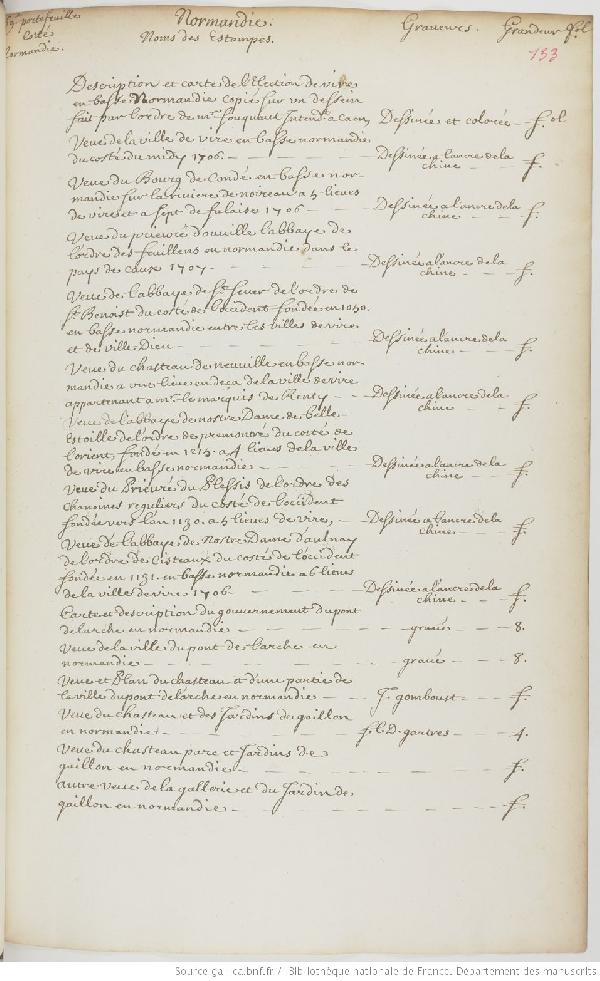 portefeuille
Cotté
Normandie.
Normandie.
Noms des Estampes. Graveurs. Grandeur fol.
153
Description et carte de l'Election de vire
en basse Normandie copié sur un dessein
fait par l'ordre de mr. fouquaut Intend.t a Caen Dessinée et colorée — f. ol.
Veue de la ville de vire en basse normandie
du costé du midy 1706. — Dessinée a l'ancre de la chine — f.
Veue du Bourg de Condé en basse nor-
mandie sur la riviere de noireau a 5 lieues
de vire et a sept de falaise 1706 — Dessinée a l'ancre de la chine — f.
Veue du prieuré d'ouville l'abbaye de
l'ordre des feuillens en normandie dans le
pays de caux 1707 — Dessinée a l'ancre de la chine — f.
Veue de l'abbaye de St. Sever de l'ordre de
St. Benoist du costé de l'occident fondée en 1050.
en basse normandie entre les villes de vire
et de ville Dieu — Dessinée a l'ancre de la chine — f.
Veue du chasteau de neuville en basse nor-
mandie a une lieue en deça de la ville de vire
appartenant a mr. le marquis de Renty — Dessinée a l'ancre de la chine — f.
Veue de l'abbaye de nostre Dame de belle
Estoille de l'ordre de premontré du costé de
l'orient, fondée en 1215 a 4 lieues de la ville
de vire en basse normandie — Dessinée a l'ancre de la chine — f.
Veue du Prieuré du Plessis de l'ordre des
chanoines reguliers du costé de l'occident
fondée vers l'an 1130. a 5 lieues de vire, — Dessinée a l'ancre de la chine — f.
Veue de l'abbaye de Nostre Dame d'aulnay
de l'ordre de Cisteaux du costé de l'occident
fondée en 1131. en basse normandie a 6 lieues
de la ville de vire 1706 — Dessinée a l'ancre de la chine — f.
Carte et description du gouvernement du pont
de larche en normandie — gravée — 8.
Veue de la ville du pont de Larche en
normandie — gravé — 8.
Veue et Plan du chasteau et d'une partie de
la ville du pont de larche en normandie — J. gomboust — f.
Veue du chasteau et des Jardins de gaillon
en normandie. — f. l. D. gartres — 4.
Veue du chasteau parc et Jardins de
gaillon en normandie — f.
autre veue de la gallerie et du Jardin de
gaillon en normandie — f.
Source gallica.bnf.fr / Bibliothèque nationale de France. Département des manuscrits.